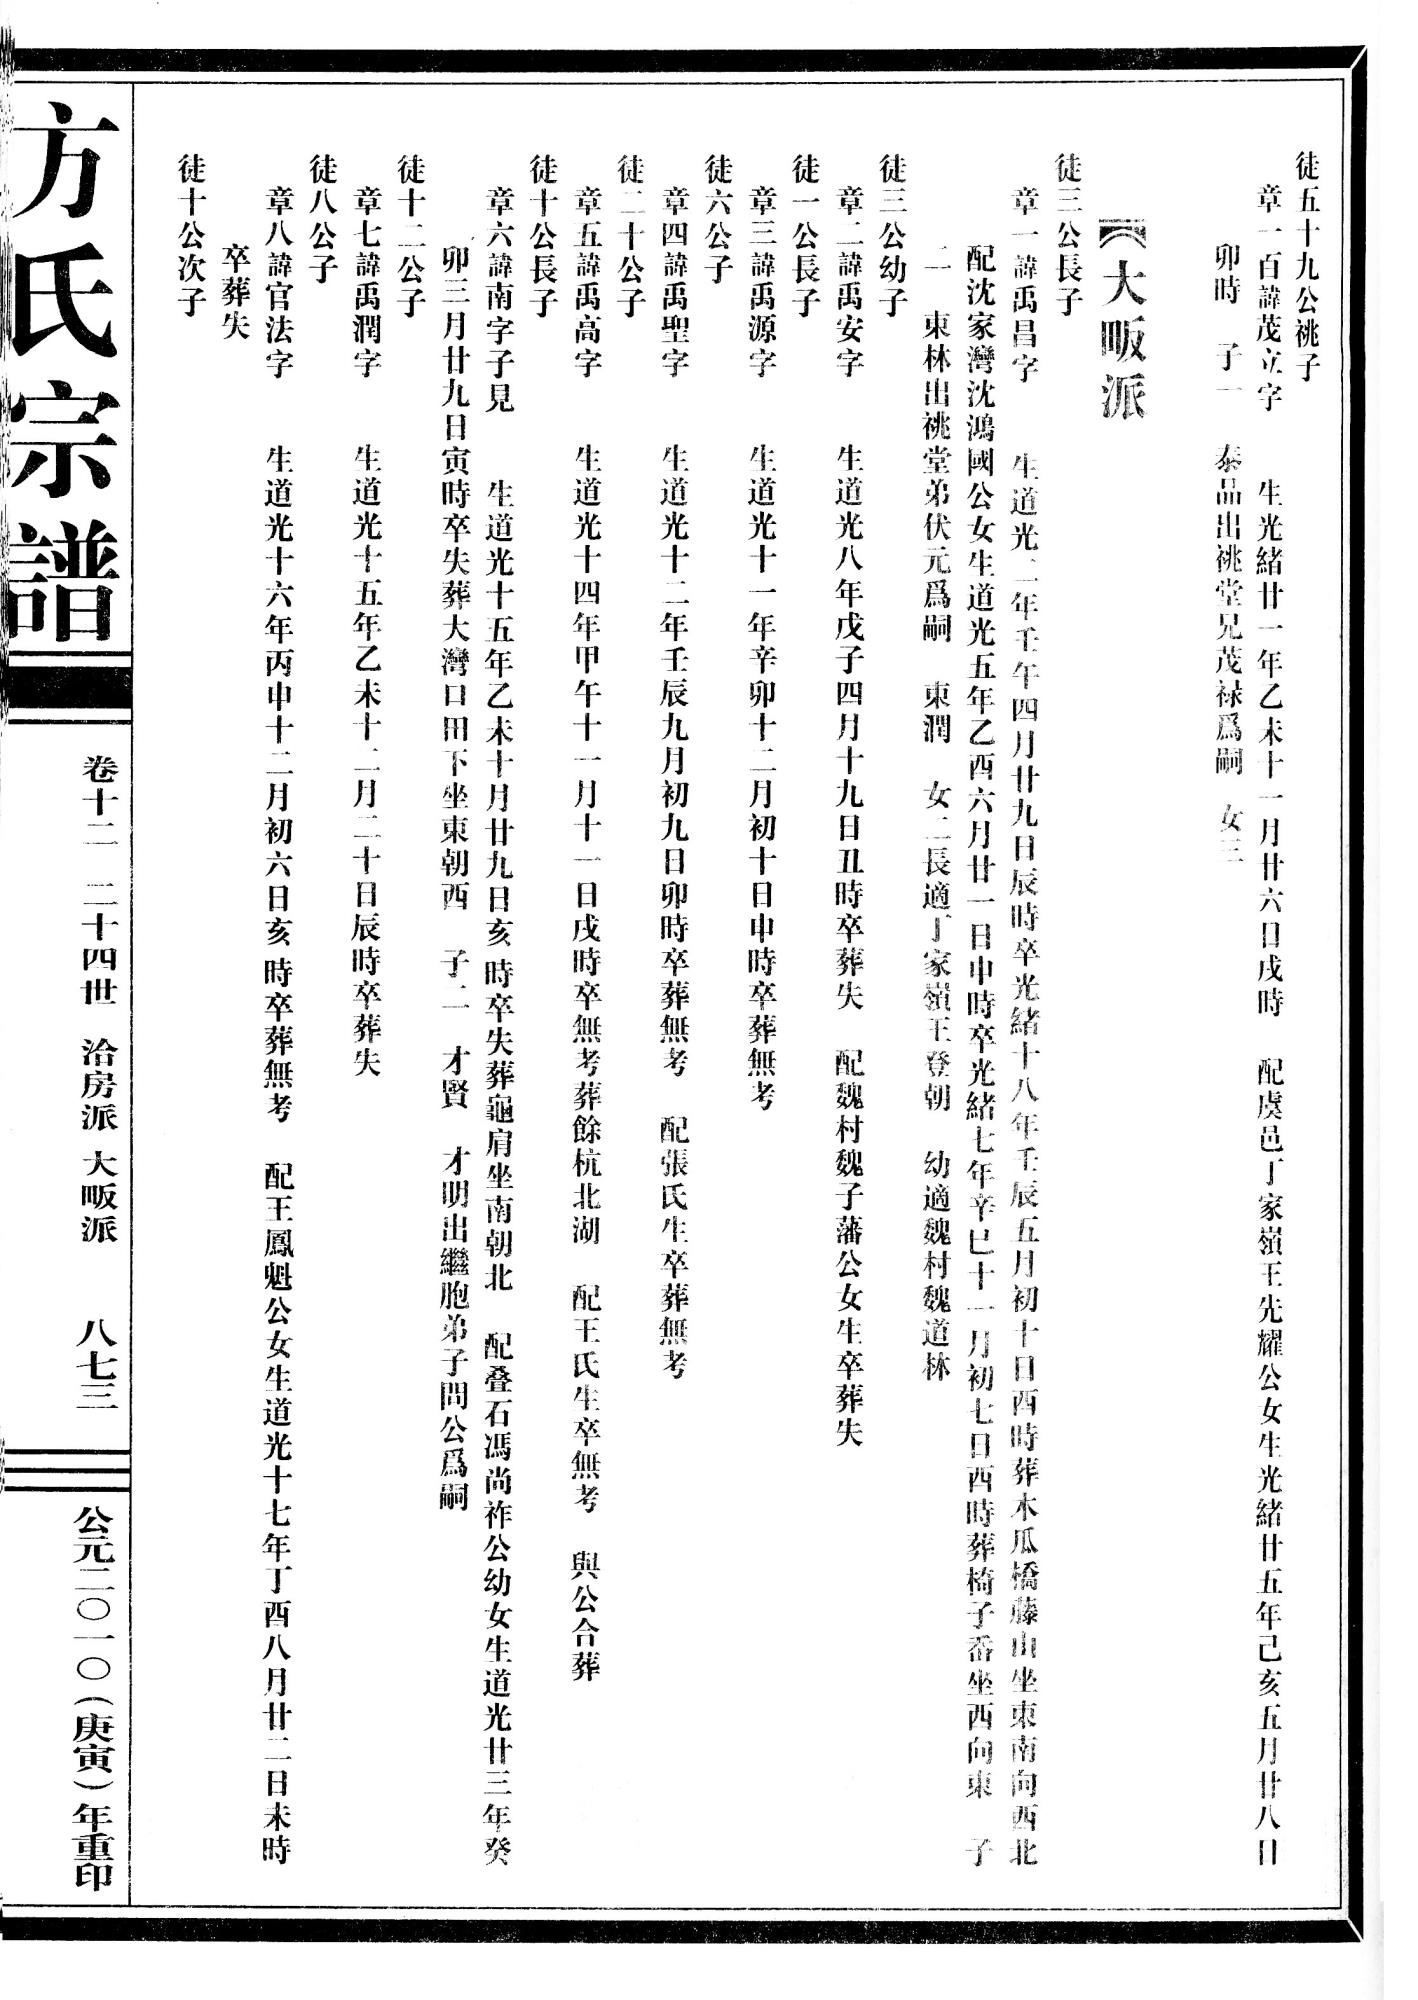 徒五十九公祧子
章一百諱茂立字　生光緒廿一年乙未十一月廿六日戌時　配虞邑丁家嶺王先耀公女生光緒廿五年己亥五月廿八日
卯時　子一　泰品出祧堂兄茂禄爲嗣　女三
大畈派
徒三公長子
章一諱禹昌字　生道光二年壬午四月廿九日辰時卒光緒十八年壬辰五月初十日酉時葬木瓜橋藤山坐東南向西北
配沈家灣沈鴻國公女生道光五年乙酉六月廿一日申時卒光緒七年辛巳十一月初七日酉時葬椅子岙坐西向東　子
二　東林出祧堂弟伏元爲嗣　東潤　女二長適丁家嶺王登朝　幼適魏村魏道林
徒三公幼子
章二諱禹安字　生道光八年戊子四月十九日丑時卒葬失　配魏村魏子藩公女生卒葬失
徒一公長子
章三諱禹源字　生道光十一年辛卯十二月初十日申時卒葬無考
徒六公子
章四諱禹聖字　生道光十二年壬辰九月初九日卯時卒葬無考　配張氏生卒葬無考
徒二十公子
章五諱禹高字　生道光十四年甲午十一月十一日戌時卒無考葬餘杭北湖　配王氏生卒無考　與公合葬
徒十公長子
章六諱南字子見　生道光十五年乙未十月廿九日亥時卒失葬龜肩坐南朝北　配叠石馮尚祚公幼女生道光廿三年癸
卯三月廿九日寅時卒失葬大灣口田下坐東朝西　子二　才賢　才明出繼胞弟子問公爲嗣
徒十二公子
章七諱禹潤字　生道光十五年乙未十二月二十日辰時卒葬失
徒八公子
章八諱官法字　生道光十六年丙申十二月初六日亥時卒葬無考　配王鳳魁公女生道光十七年丁酉八月廿二日未時
卒葬失
徒十公次子
方氏宗譜
卷十二　二十四世　洽房派　大畈派　八七三
公元二〇一〇（庚寅）年重印